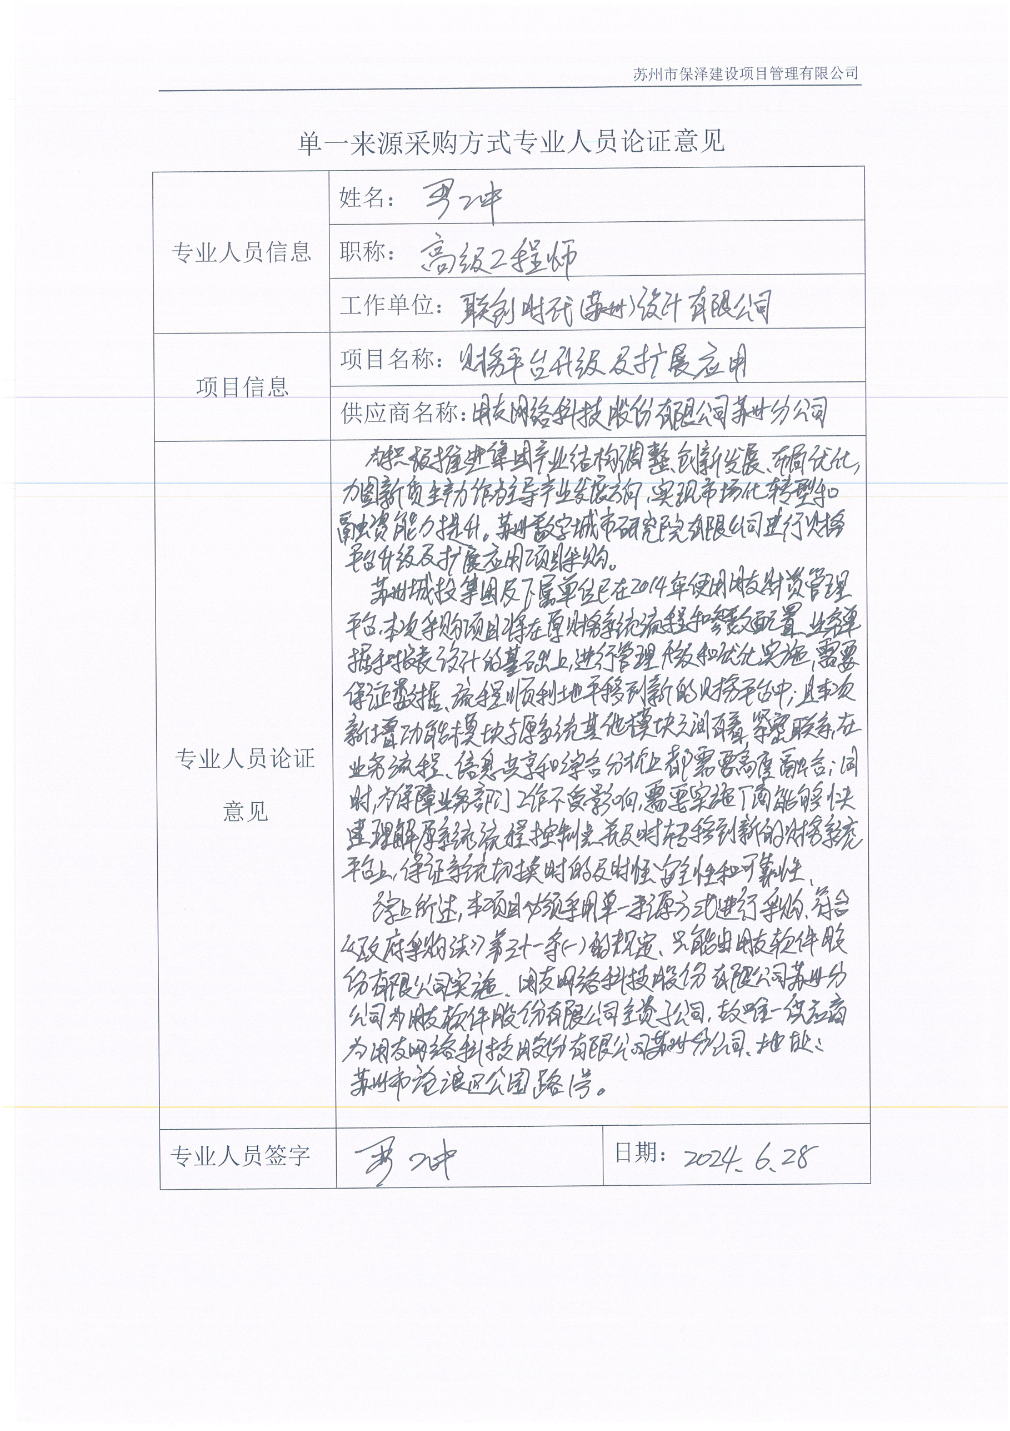 苏州市保泽建设项目管理有限公司
单一来源采购方式专业人员论证意见
专业人员信息
姓名：
职称： 高级工程师
工作单位： 联创时代（苏州）设计有限公司
项目信息
项目名称： 财务平台升级及扩展应用
供应商名称： 用友网络科技股份有限公司苏州分公司
专业人员论证
意见
为积极推进集团产业结构调整、创新发展、布局优化，
力图新质生产力作为主导产业发展方向，实现市场化转型和
融资能力提升。苏州数字城市研究院有限公司进行财务
平台升级及扩展应用项目采购。
苏州城投集团及下属单位已在2014年使用用友财资管理
平台，本次采购项目将在原财务系统流程和参数配置、业务单
据和报表设计的基础上，进行管理升级和优化实施，需要
保证数据、流程顺利地平移到新的财务平台中；且本次
新增功能模块与原系统其他模块之间有着紧密联系，在
业务流程、信息共享和综合分析上都需要高度融合；同
时，为保障业务部门工作不受影响，需要实施厂商能够快
速理解原系统流程控制点并及时转移到新的财务系统
平台上，保证系统切换时的及时性、安全性和可靠性。
综上所述，本项目必须采用单一来源方式进行采购，符合
《政府采购法》第三十一条（一）的规定、只能由用友软件股
份有限公司实施、用友网络科技股份有限公司苏州分
公司为用友软件股份有限公司全资子公司，故唯一供应商
为用友网络科技股份有限公司苏州分公司、地址：
苏州市沧浪区公园路1号。
专业人员签字
日期： 2024.6.28